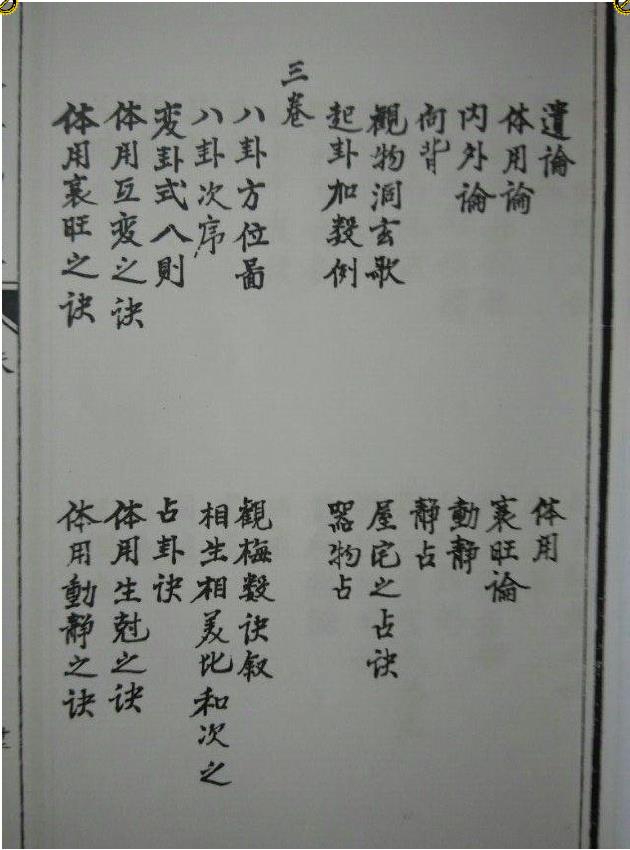 遺論
体用
体用論
衰旺論
内外論
動静
向背
静占
観物洞玄歌
屋宅之占诀
起卦加数例
器物占
三卷
八卦方位圖
観梅数诀叙
八卦次序
相生相美比和次之
変卦式八則
占卦诀
体用互変之诀
体用生尅之诀
体用衰旺之诀
体用動静之诀